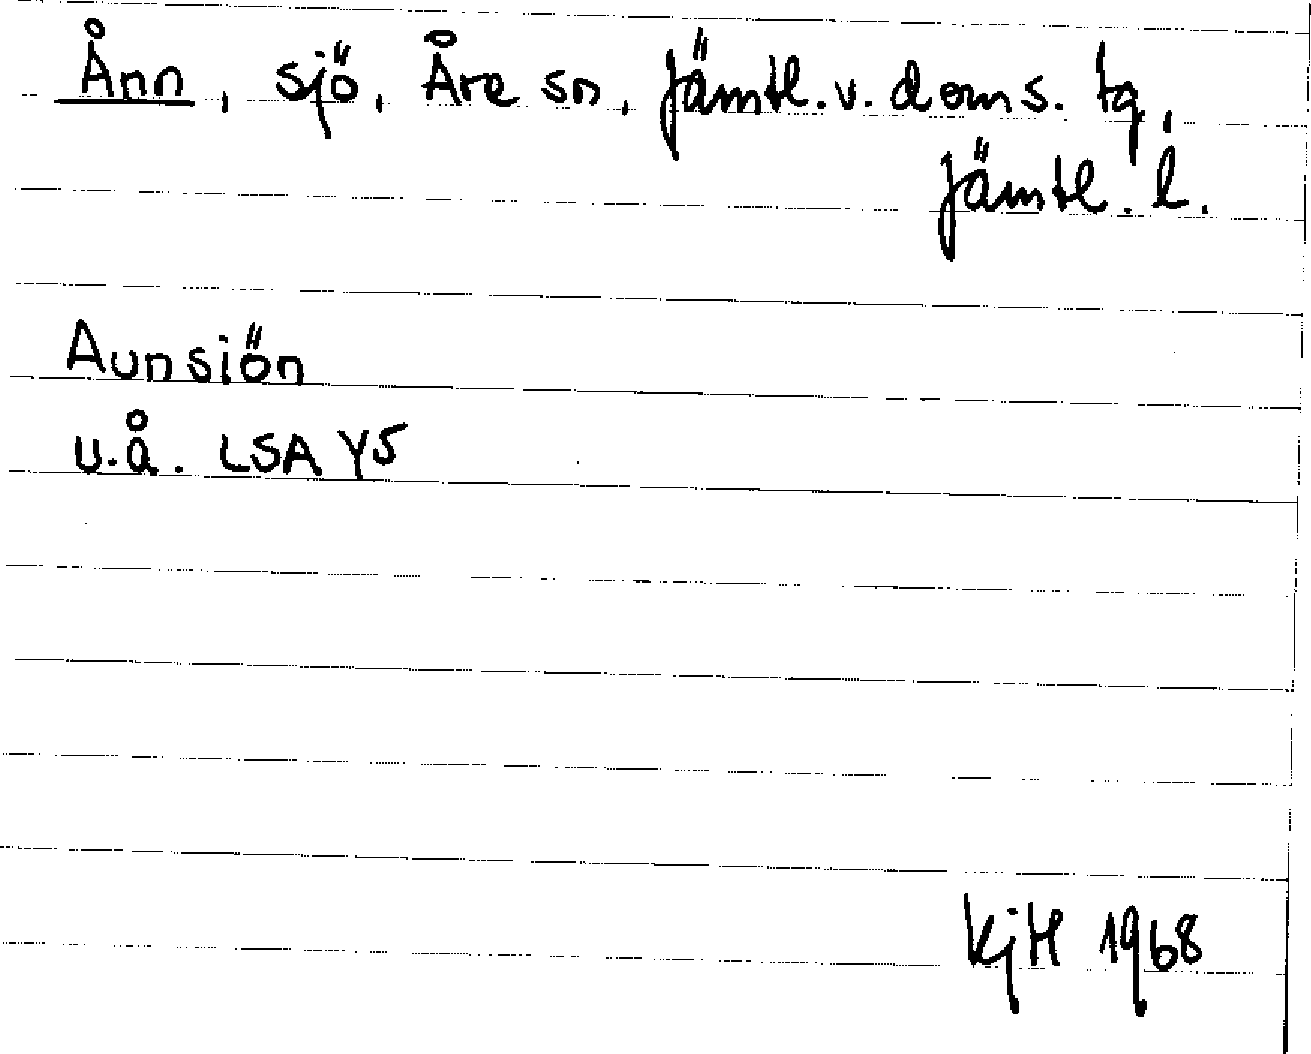 Ånn, sjö, Åre sn, Jämtl. v. doms. tg,
Jämtl. l.
Aunsiön
u.å. LSA Y5
KjH 1968